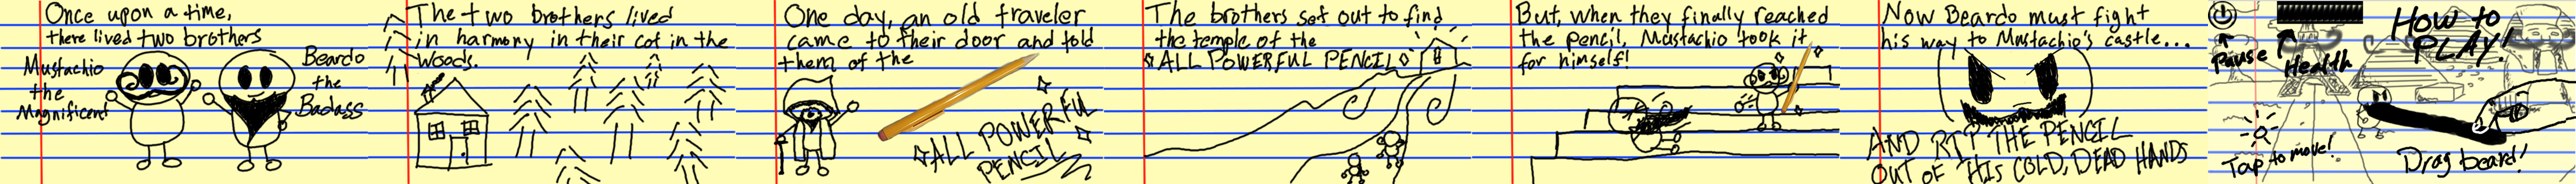 Once upon a time,
there lived two brothers
Mustachio
the
Magnificent
Beardo
the
Badass
The two brothers lived
in harmony in their cot in the
woods.
One day, an old traveler
came to their door and told
them of the
ALL POWERFUL
PENCIL
The brothers set out to find
the temple of the
ALL POWERFUL PENCIL
But, when they finally reached
the pencil, Mustachio took it
for himself!
Now Beardo must fight
his way to Mustachio's castle...
AND RIP THE PENCIL
OUT OF HIS COLD, DEAD HANDS
HOW TO
PLAY!
Pause
Health
Tap to move!
Drag beard!